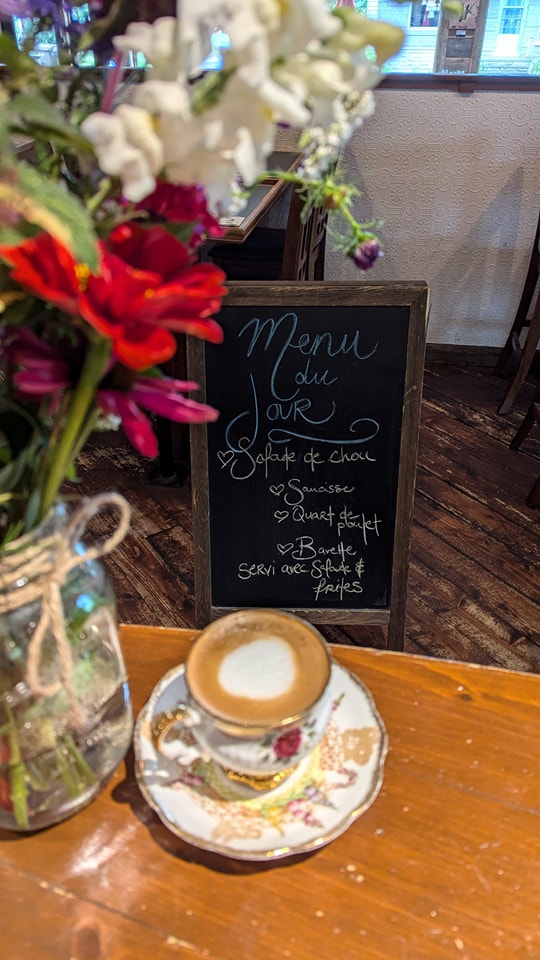 Menu
du
Jour
Salade de chou
Saucisse
Quart de
poulet
Bavette
Servi avec Salade &
frites